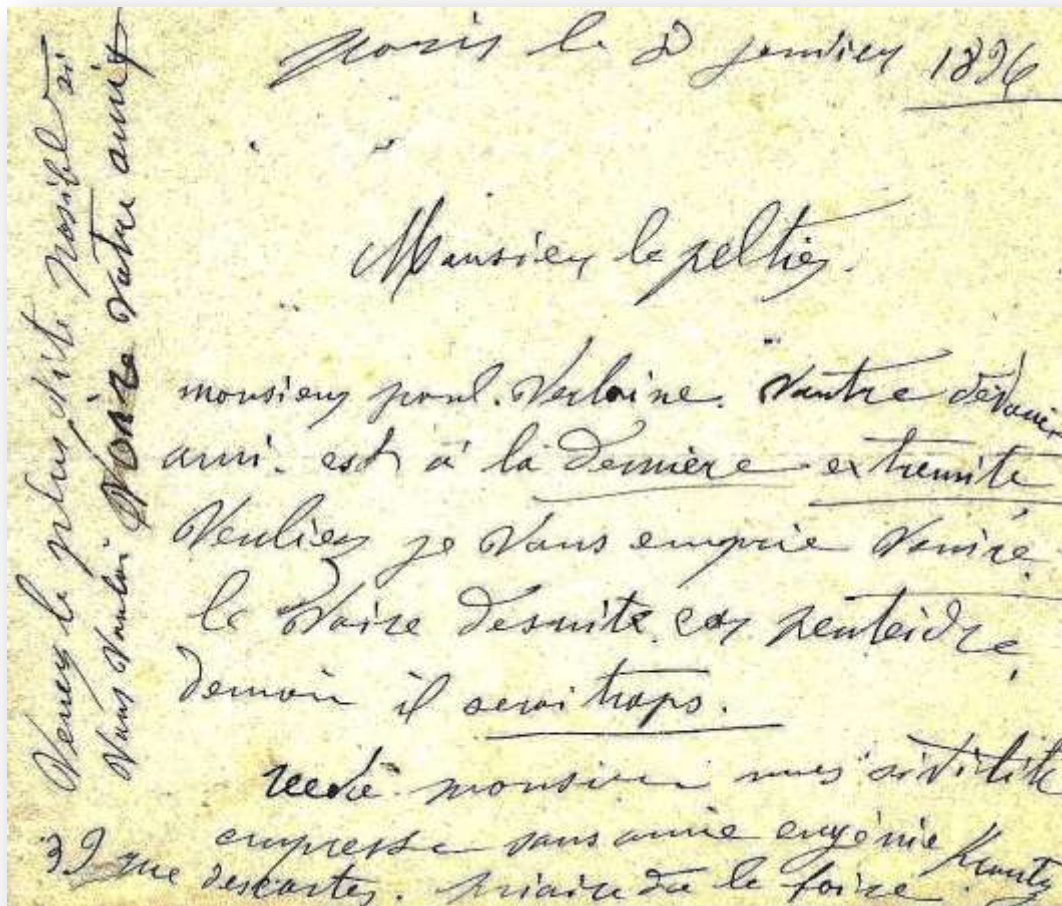 paris le 8 janvier 1896
Monsieur lepeltier.
monsieur paul. Verlaine. vautre dévoué
ami. est à la dernière extremite
Veuliez je vous emprie venire
le voire desuite. car peuteidre
demain il serai traps.
monsieur mes
empresse sans amie eugénie Krantz
39 rue descartes. priaire de le faire
Venez le plus vite posible si
vous voulai voire votre amis